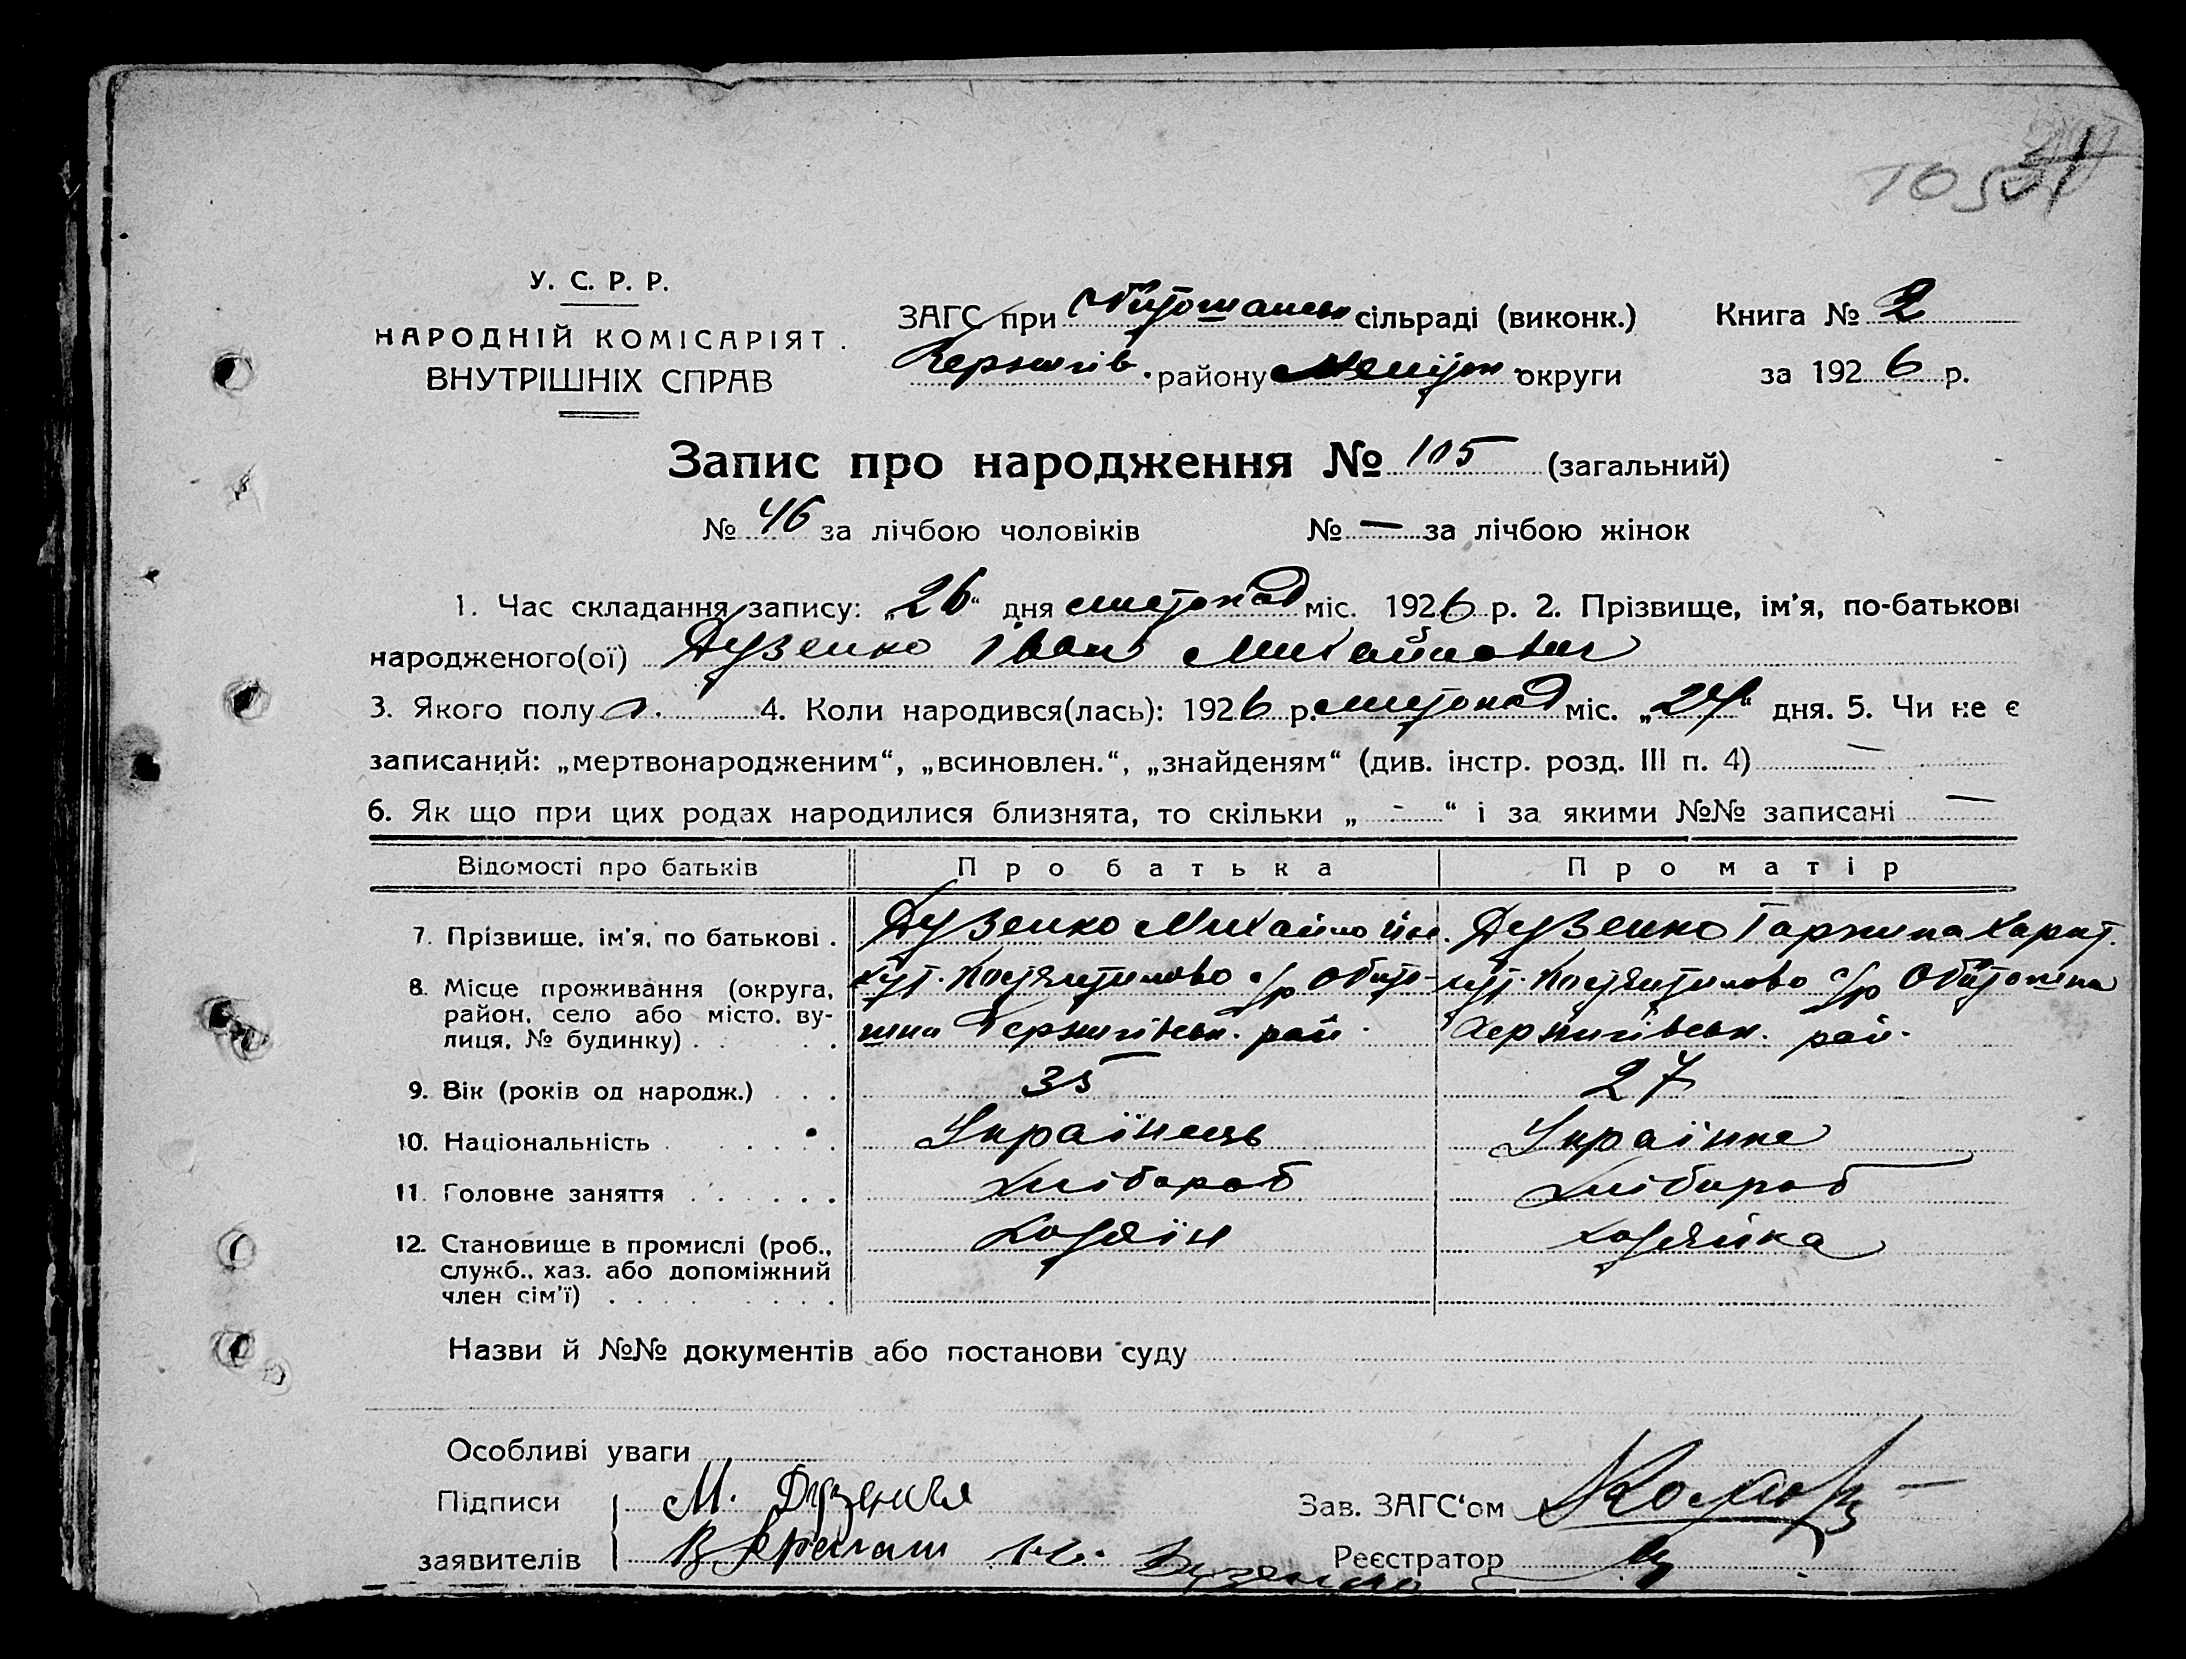 У. С. Р. Р.
НАРОДНІЙ КОМІСАРІЯТ
ВНУТРІШНІХ СПРАВ
ЗАГС при сільраді (виконк.) Книга № 2
району округи за 1926 р.
Запис про народження № 105 (загальний)
№ 46 за лічбою чоловіків № — за лічбою жінок
1. Час складання запису: „26“ дня листопад міс. 1926 р. 2. Прізвище, ім'я, по-батькові
народженого(ої) Дузенко Іван Михайлович
3. Якого полу ч. 4. Коли народився(лась): 1926 р. листопад міс. „24“ дня. 5. Чи не є
записаний: „мертвонародженим“, „всиновлен.“, „знайденям“ (див. інстр. розд. III п. 4) —
6. Як що при цих родах народилися близнята, то скільки „ - “ і за якими №№ записані —
Відомості про батьків Про батька Про матір
7. Прізвище, ім'я, по батькові . Дузенко Михайло Дузенко
8. Місце проживання (округа, хут. с/р хут. с/р
район, село або місто, ву- рай. рай.
лиця, № будинку)
9. Вік (років од народж.) . . . 35 27
10. Національність Українець Українка
11. Головне заняття Хлібороб Хлібороб
12. Становище в промислі (роб., Хозяїн Хозяйка
служб., хаз. або допоміжний
член сім'ї)
Назви й №№ документів або постанови суду
Особливі уваги
Підписи М. Дузенко Зав. ЗАГС'ом
заявителів Реєстратор